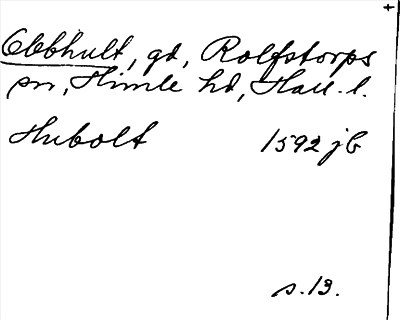 Obbhult, gd, Rolfstorps
sn, Himle hd, Hall. l.
Hubolt 1592 jb
s. 13.